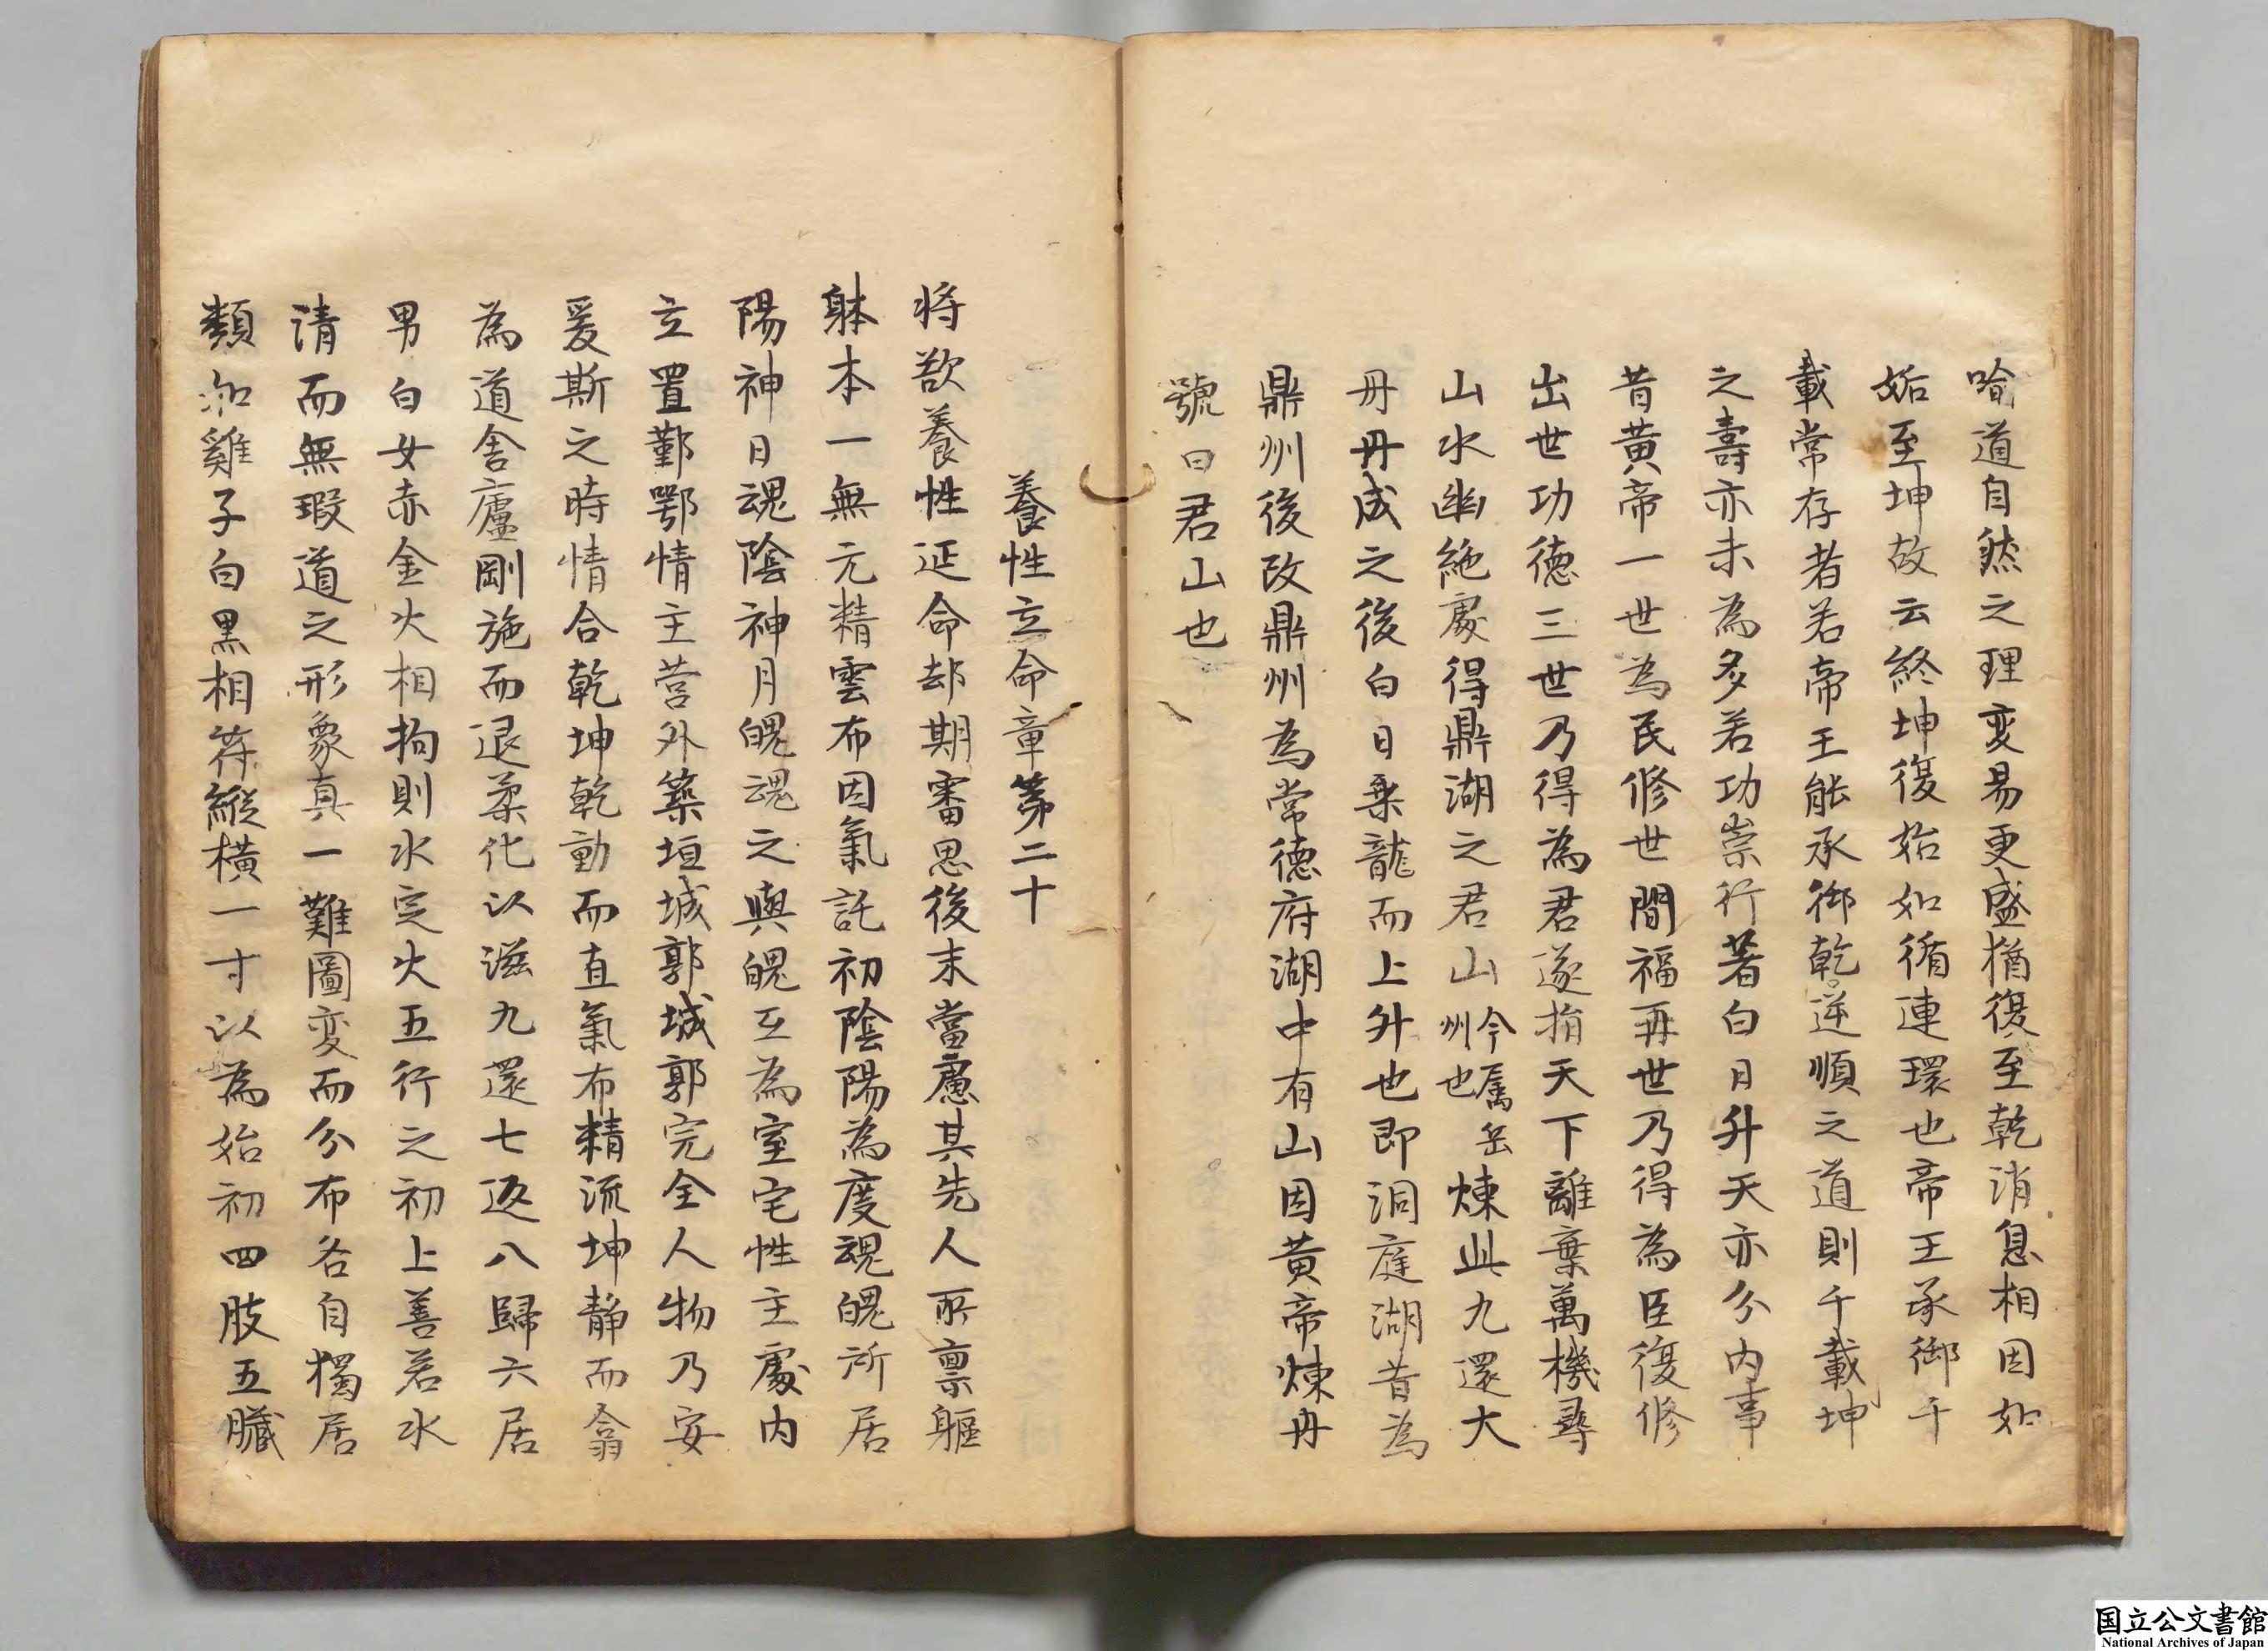 喻道自然之理変易更盛猶復至乾消息相因如
姤至坤故云終坤復始如循連環也帝王承御千
載常存者若帝王能承御乾逆順之道則千載坤
之壽亦未為多若功崇行著白日升天亦分內事
昔黃帝一世為民修世間福再世乃得為臣復修
出世功德三世乃得為君遂捐天下離棄萬機尋
山水幽絶處得鼎湖之君山今属岳州也煉此九還大
丹丹成之後白日乗龍而上升也即洞庭湖昔為
鼎州後改鼎州為常德府湖中有山因黃帝煉丹
號曰君山也
養性立命章第二十
将欲養性延命却期審思後末當慮其先人所禀軀
躰本一無元精雲布因氣託初陰陽為度魂魄所居
陽神日魂陰神月魄魂之與魄互為室宅性主處内
立置鄞鄂情主営外築垣城郭城郭完全人物乃安
爰斯之時情合乾坤乾動而直氣布精流坤静而翕
為道舍廬剛施而退柔化以滋九還七返八歸六居
男白女赤金火相拘則水定火五行之初上善若水
清而無瑕道之形象真一難圖変而分布各自獨居
類如雞子白黒相符縱横一寸以為始初四肢五臓
国立公文書館
National Archives of Japan